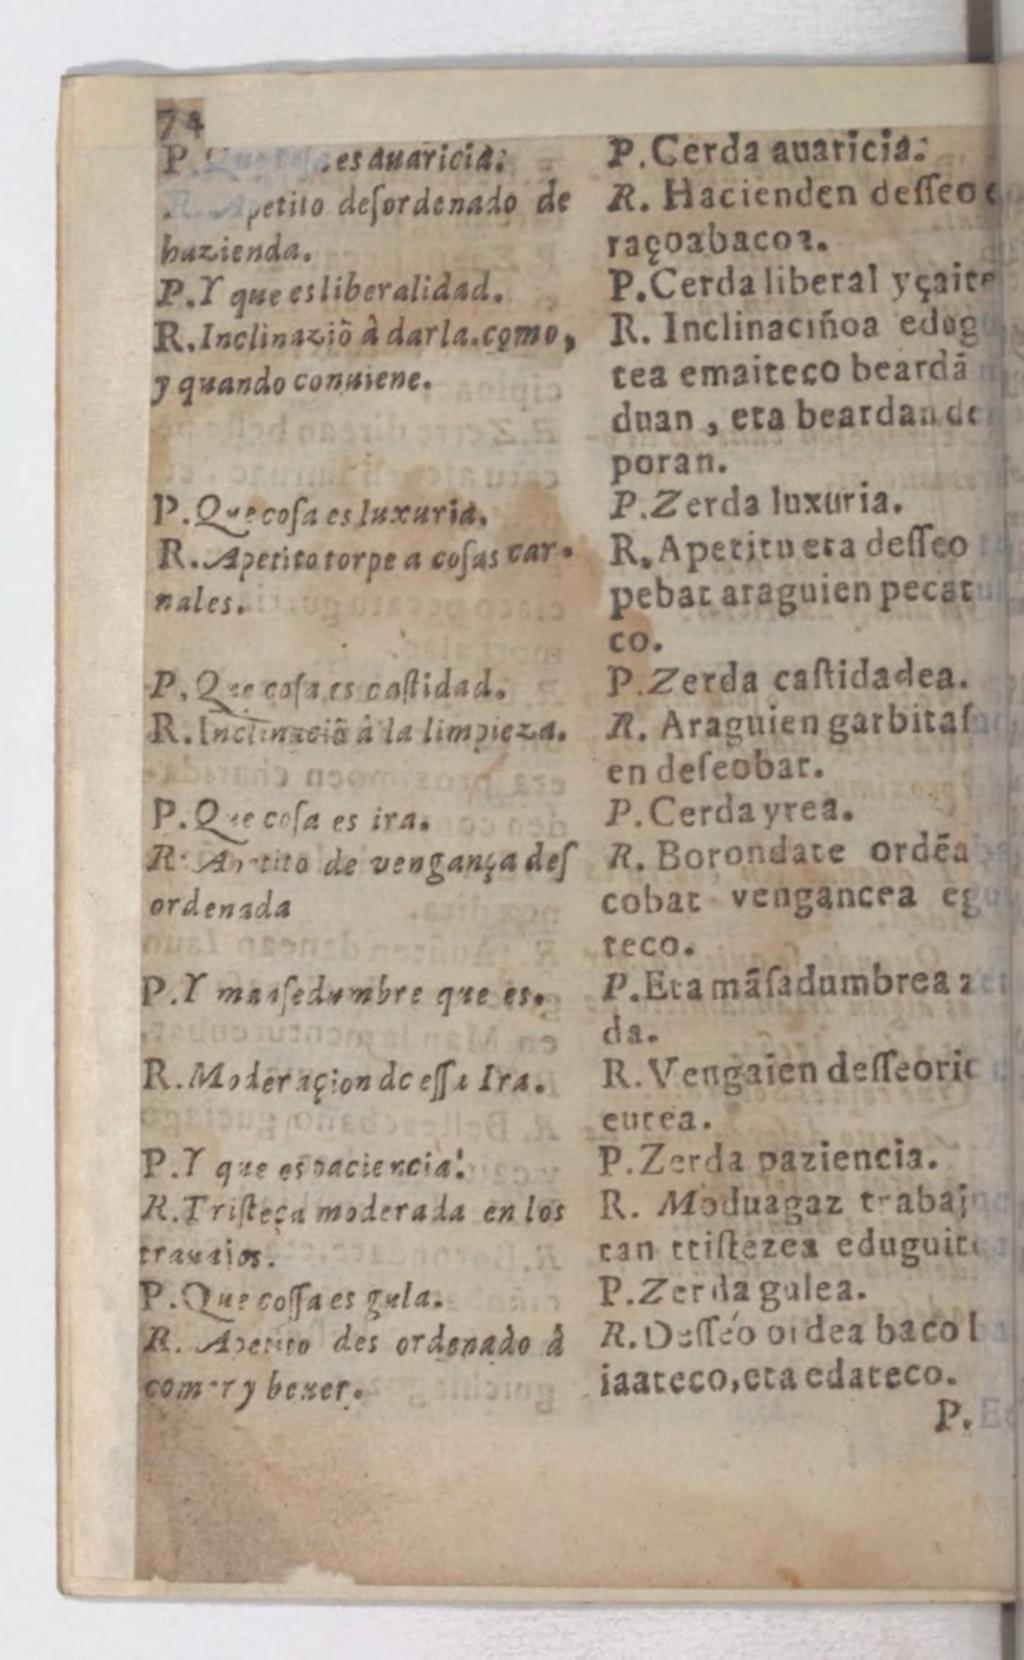 74
P. es auaricia.
petito deſordenado de
hazienda.
P.Y que es liberalidad.
R.Inclinaziō à darla.como,
y quando conuiene.
P.Que coſa es luxuria.
R. Apetito torpe a coſas car-
nales.
P. Que coſa es caſtidad.
R.Inclinaciō â la limpieza.
P. Que coſa es ira.
R. de vengança deſ
ordenada
P.Y manſedumbre que es.
R.Moderaçion de eſſa Ira.
P.Y que es paciencia.
R.Triſteça moderada en los
trauaios.
P.Que coſſa es gula.
R. Apetito des ordenado à
comer y beuer.
P.Cerda auaricia.
R. Hacienden deſſeo
raçoabacoa.
P.Cerda liberal yçaite
R. Inclinaciñoa edug
tea emaiteco beardā
duan , eta beardan de
poran.
P.Zerda luxuria.
R.Apetitu eta deſſeo
pebat araguien pecat
co.
P.Zerda caſtidadea.
R. Araguien garbitaſ
en deſeobat.
P.Cerda yrea.
R. Borondate ordēa
cobat vengancea eg
teco.
P.Eta māſadumbrea
da.
R.Vengaien deſſeoric
eutea.
P.Zerda paziencia.
R. Moduagaz trabaj
tan ttiſtezea eduguit
P.Zerda gulea.
R.Deſſeo ordea baco
iaateco,eta edateco.
P.